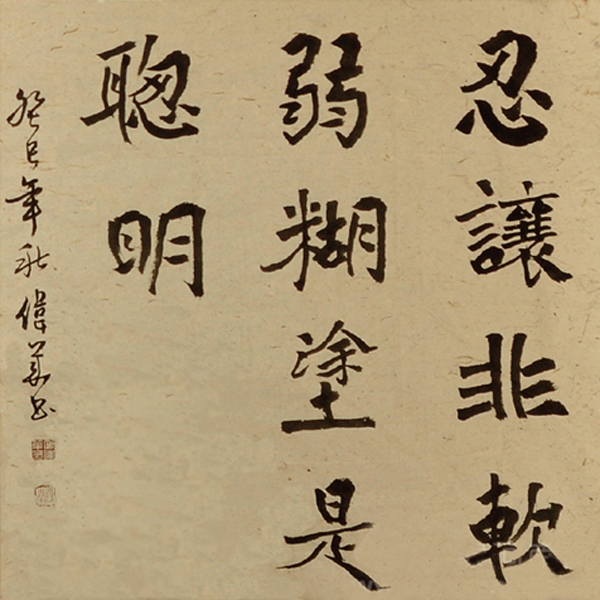 忍讓非軟
弱糊塗是
聰明
癸巳年秋偉華書